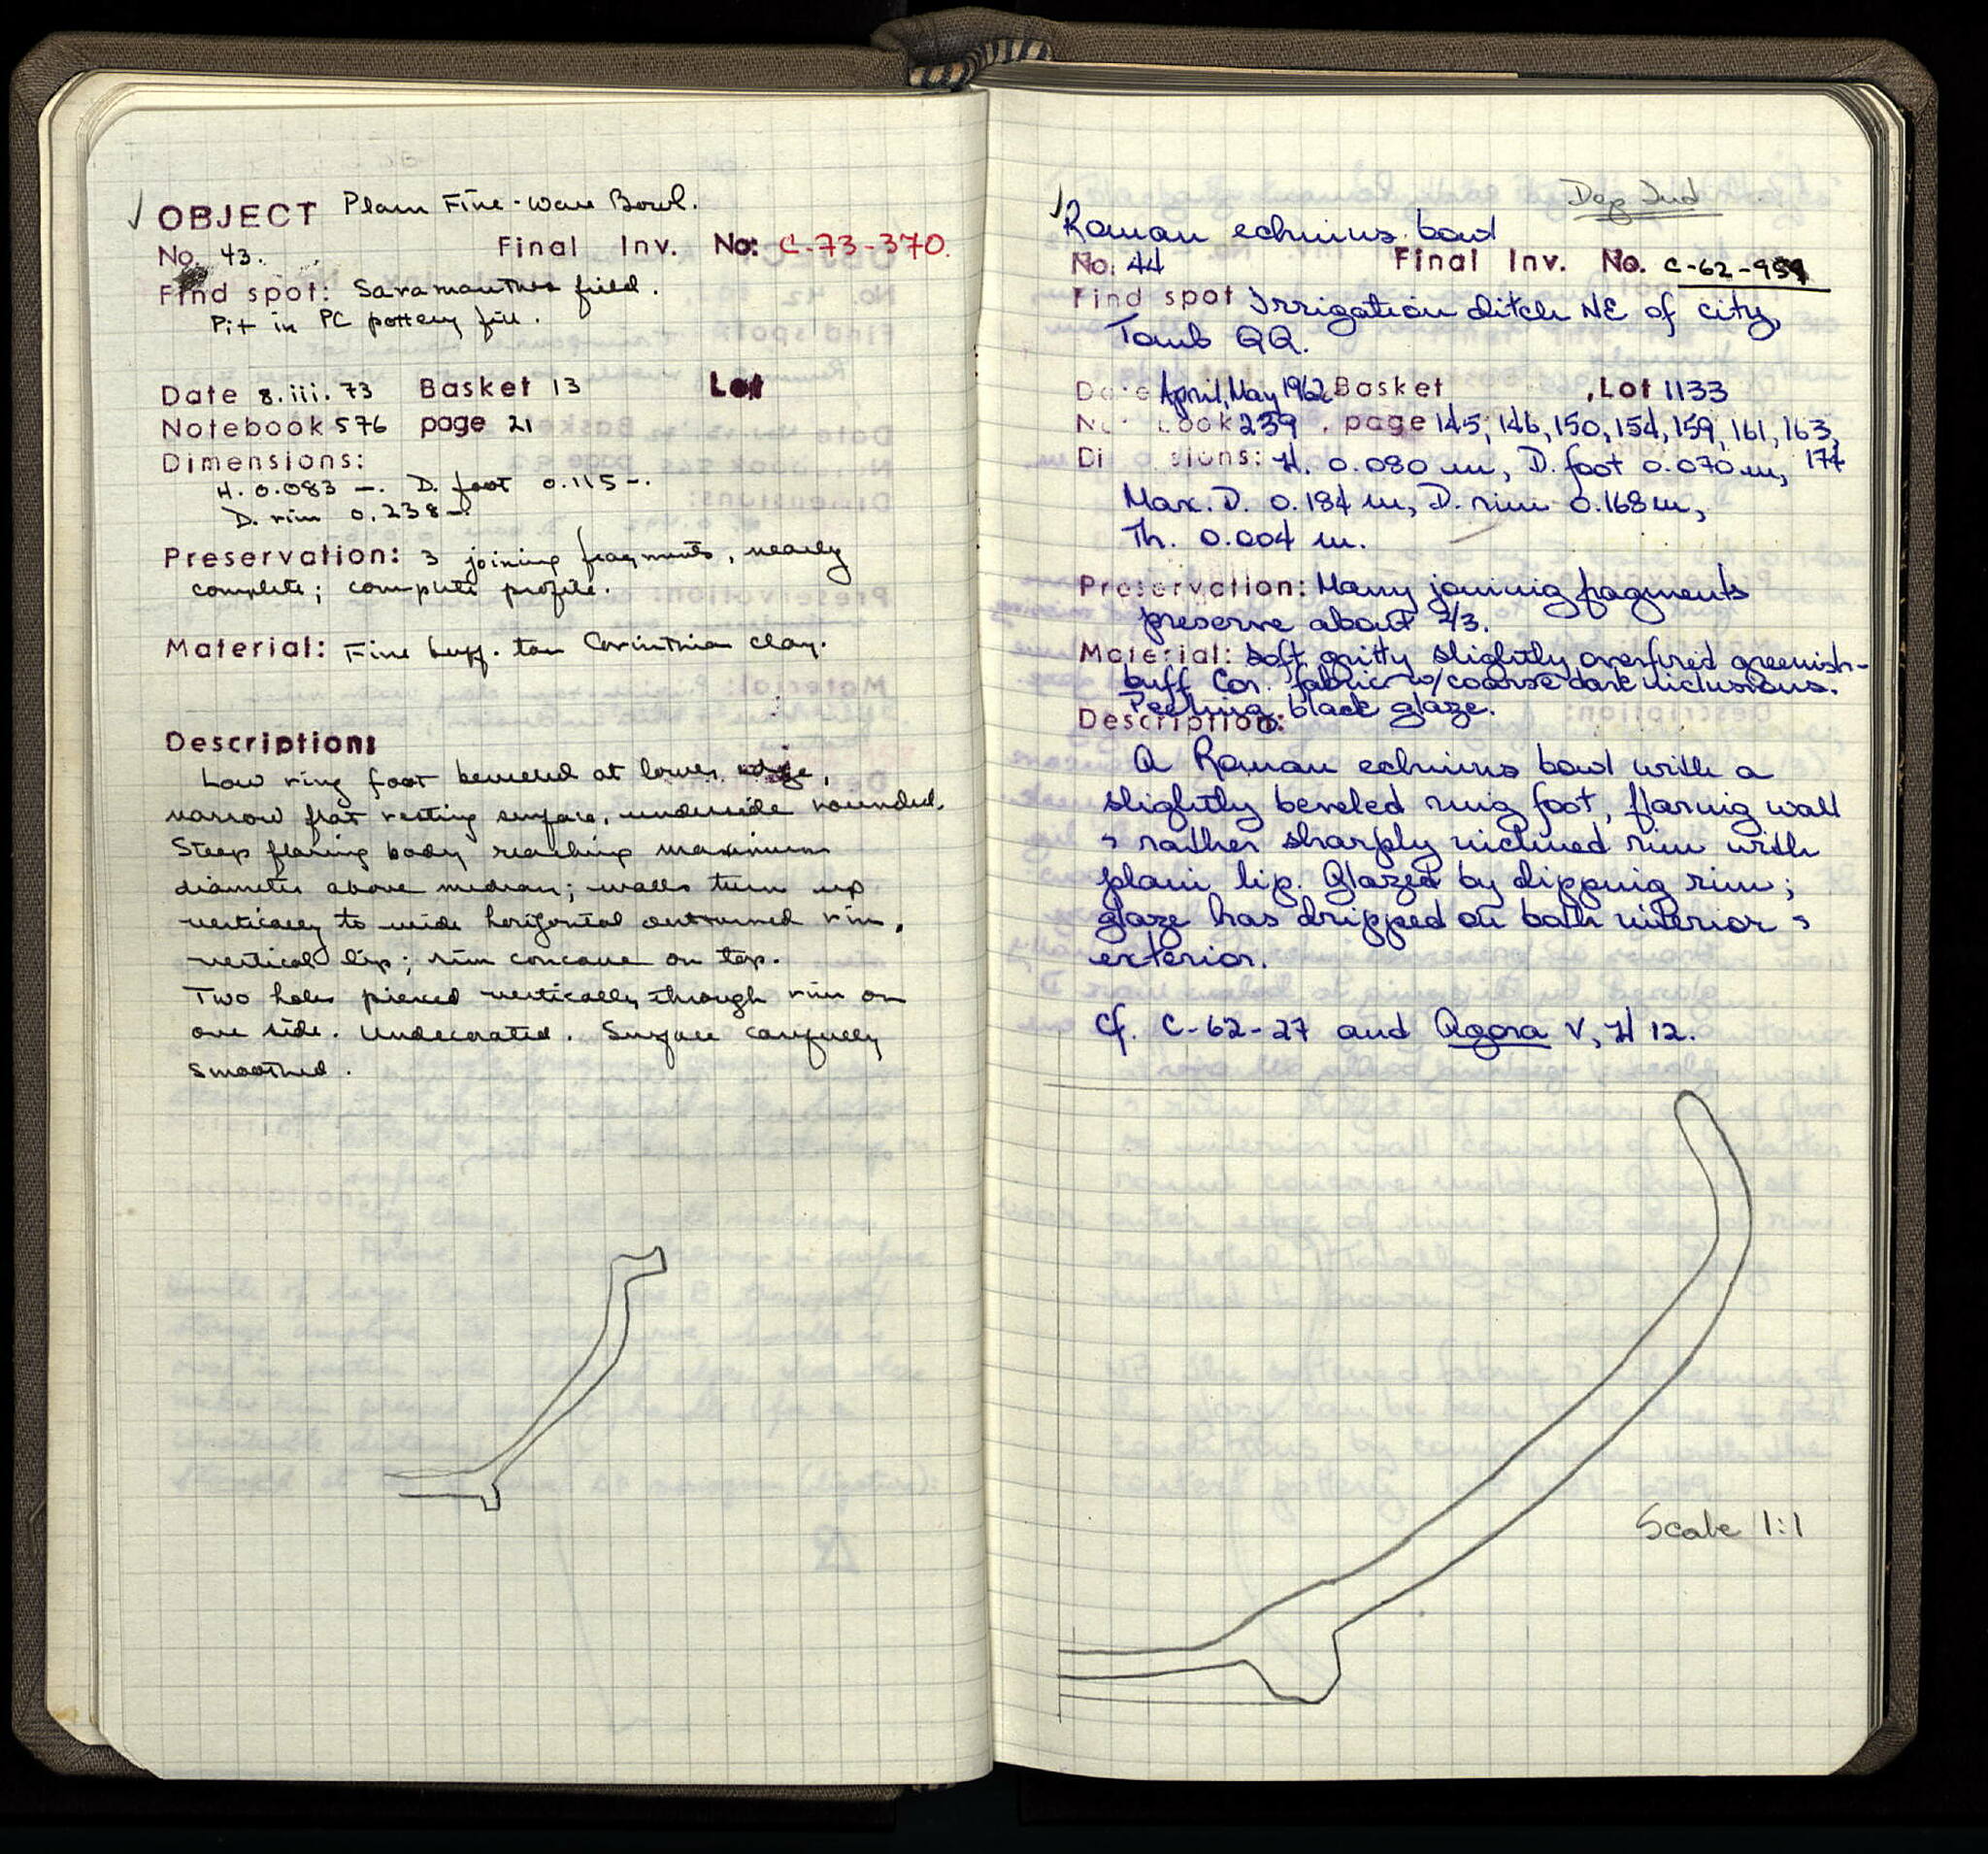 ✓ OBJECT Plain Fine-Ware Bowl.
No. 43. Final Inv. No: C-73-370.
Find spot: Saramantheo field.
Pit in PC pottery fill.
Date 8.iii.73 Basket 13 Lot
Notebook 576 page 21
Dimensions:
H. 0.083 —. D. foot 0.115 —.
D. rim 0.238 —.
Preservation: 3 joining fragments, nearly
complete; complete profile.
Material: Fine buff-tan Corinthian clay.
Description:
Low ring foot beveled at lower edge,
narrow flat resting surface, underside rounded.
Steep flaring body reaching maximum
diameter above median; walls turn up
vertically to wide horizontal outturned rim,
vertical lip; rim concave on top.
Two holes pierced vertically through rim on
one side. Undecorated. Surface carefully
smoothed.
Dep Ind
✓ Roman echinus bowl
No. 44 Final Inv. No. C-62-959
Find spot Irrigation ditch NE of city,
Tomb QQ.
Date April, May 1962 Basket , Lot 1133
Notebook 239 , page 145, 146, 150, 154, 159, 161, 163,
174
Dimensions: H. 0.080 m, D. foot 0.070 m,
Max. D. 0.184 m, D. rim 0.168 m,
Th. 0.004 m.
Preservation: Many joining fragments
preserve about 2/3.
Material: Soft gritty slightly overfired greenish-
buff Cor. fabric w/coarse dark inclusions.
Peeling black glaze.
Description:
A Roman echinus bowl with a
slightly beveled ring foot, flaring wall
& rather sharply inclined rim with
plain lip. Glazed by dipping rim;
glaze has dripped on both interior &
exterior.
Cf. C-62-27 and Agora V, H 12.
Scale 1:1